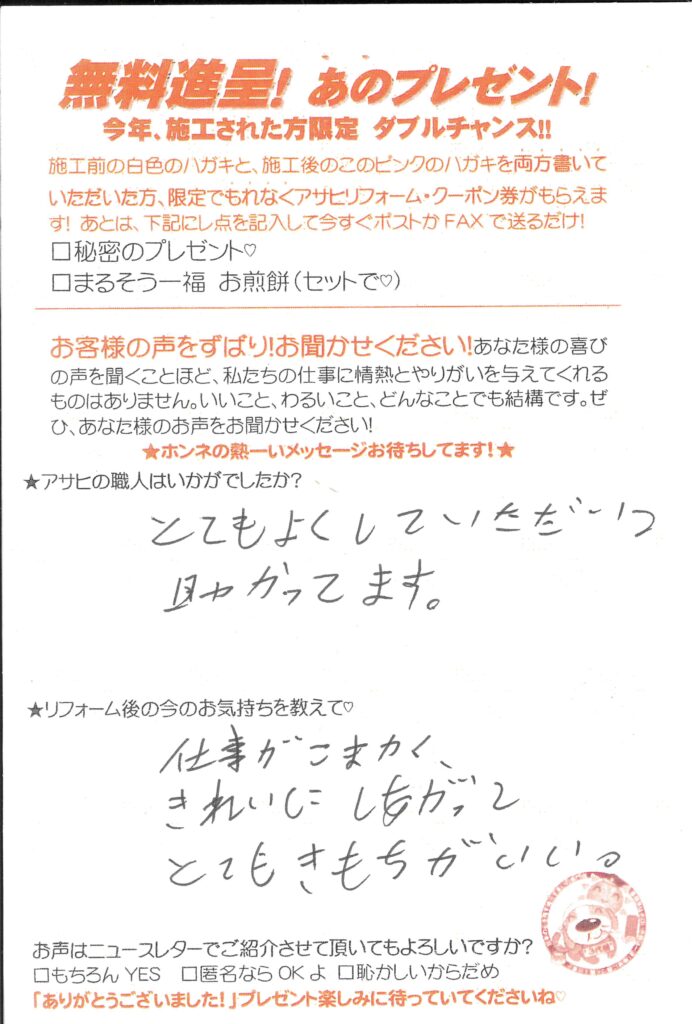 無料進呈! あのプレゼント!
今年、施工された方限定 ダブルチャンス!!
施工前の白色のハガキと、施工後のこのピンクのハガキを両方書いて
いただいた方、限定でもれなくアサヒリフォーム・クーポン券がもらえま
す! あとは、下記にし点を記入して今すぐポストかFAXで送るだけ!
□秘密のプレゼント♡
□まるそう一福 お煎餅(セットで♡)
お客様の声をずばり!お聞かせください!あなた様の喜び
の声を聞くことほど、私たちの仕事に情熱とやりがいを与えてくれる
ものはありません。いいこと、わるいこと、どんなことでも結構です。ぜ
ひ、あなた様のお声をお聞かせください!
★ホンネの熱ーいメッセージお待ちしてます!★
★アサヒの職人はいかがでしたか?
とてもよくしていただいつ
助かってます。
★リフォーム後の今のお気持ちを教えて♡
仕事がこまかく、
きれいに しあがって
とてもきもちがいい。
お声はニュースレターでご紹介させて頂いてもよろしいですか?
□もちろんYES □匿名ならOKよ □恥かしいからだめ
「ありがとうございました!」プレゼント楽しみに待っていてくださいね♡